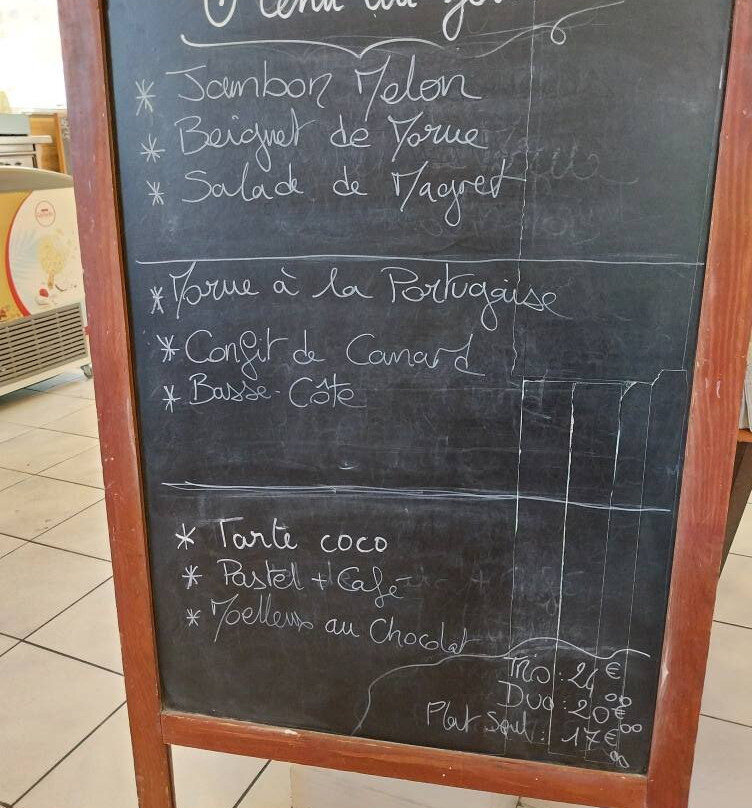 Menu du Jour
* Jambon Melon
* Beignet de Morue
* Salade de Magret
* Morue à la Portugaise
* Confit de Canard
* Basse-Côte
* Tarte coco
* Pastel + Café
* Moelleux au Chocolat
Trio : 24 €
Duo : 20€00
Plat Seul : 17€00